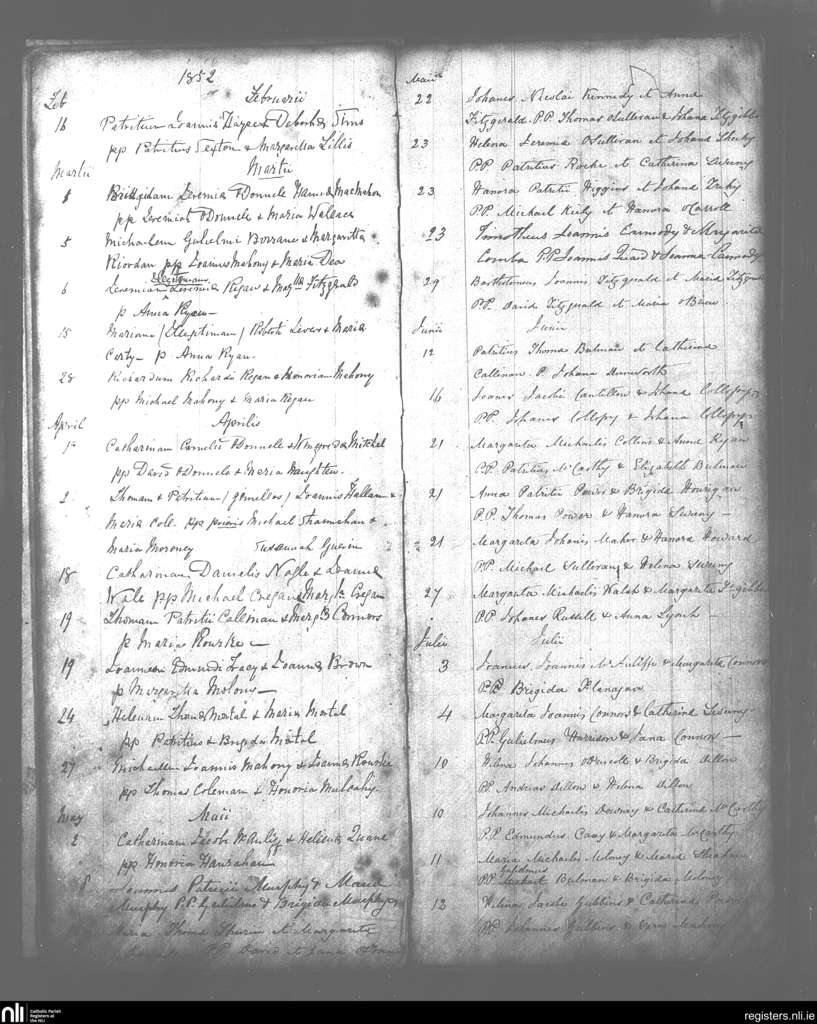 1852
Feb Februarii
16 Patritium Joannis Hayes & Deborah Sims
pp Patritius Sexton & Margaretta Lillis
Martii Martii
Bridgidam Jeremia O Donnele Name & MacMahon
pp Jeremiah O Donnele & Maria Wallace
5 Michaelem Gulielmi Borrane & Margaretta
Riordan pp Joannes Mahony & Maria Dea
Illegitimam
6 Jeremiam Jeremia Regan & Marg tta Fitzgerald
p Anna Ryan
15 Mariam (Illegitimam) Roberti Lever & Maria
Carty p Anna Ryan
28 Richardum Richardi Regan & Honoriam Mahony
pp Michael Mahony & Maria Regan
April Aprilis
1 Catharinam Cornelii O Donnele & Mitchel
pp David O Donnele & Maria Naughten
2 Thomam & Patritium (gemellos) Joannis Hallam &
Maria Coll. pp prioris Michael Shanahan &
Maria Moroney Susannah Guerin
18 Catharinam Danielis Nagle & Joanna
Wale pp Michael Cregan & Marg ta Cregan
19 Thomam Patritii Callenan & Marg ta Connors
p Maria Rourke
19 Joannem Edmundi Tracy & Joanna Brown
p Margaretta Molony
24 Helenam Thoma Mortal & Maria Mortal
pp Patritius & Brigida Mortal
27 Michaelem Joannis Mahony & Joanna Rourke
pp Thomas Coleman & Honoria Mulcahy
May Maii
2 Catharinam Jacobi McAuliff & Helena Quane
pp Honoria Hanrahan
8 Joannes Patricii Murphy & Maria
Murphy P.P. Gulielmo & Brigida Murphy
Maria Thoma Guerin et Margarita
P.P. David et Jana
Maii
22 Johanes Nicolai Kennedy et Anna
Fitzgerald. P.P. Thomas O Sullivan & Johana Fitzgibbon
23 Helena Jeremia O Sullivan et Johana Sheehy
P.P. Patritius Roche et Catherina Sweeny
23 Hanora Patritii Higgins et Johana
P.P. Michael Kiely et Hanora O Carroll
23 Timotheus Joannis Carmody & Margarita
Comba P.P. Joannes & Joanna Carmody
29 Bartholomeus Joannis Fitzgerald et Maria Fitzgerald
P.P. David Fitzgerald et Maria O Brien
Junii Junii
12 Patritius Thoma Bulman et Catherina
Callenan. P. Johana Unnworth
16 Joanes Jacobi Cantillon & Johana Collopy
P.P. Johanes Collopy & Johana Collopy
21 Margarita Michaelis Collins & Anna Ryan
P.P. Patritius McCarthy & Elizabeth Bulman
21 Anna Patritii Power & Brigida Hourigan
P.P. Thomas Power & Hanora Sweeny
21 Margarita Johanis Maher & Hanora Howard
P.P. Michael Sullivan & Helena Sweeny
27 Margarita Michaelis Walsh & Margarita Fitzgibbon
P.P. Johanes Russell & Anna Lynch
Julii Julii
3 Joannes Joannis McAuliffe & Margarita Connors
P.P. Brigida Flanagan
4 Margarita Joannis Connors & Catherina Sweeny
P.P. Gulielmus Harrison & Jana Connors
10 Helena Johannis O Driscoll & Brigida Dillon
P.P. Andreas Dillon & Helena Dillon
10 Johannes Michaelis Downey & Catherina McCarthy
P.P. Edmundus Casey & Margarita McCarthy
11 Maria Michaelis Molony & Maria Sheehan
P.P. Michael Bulman & Brigida Molony
12 Helena Jacobi Gubbins & Catherina
P.P. Johannes Gubbins & Mahony
nli
Catholic Parish
Registers at
the NLI
registers.nli.ie